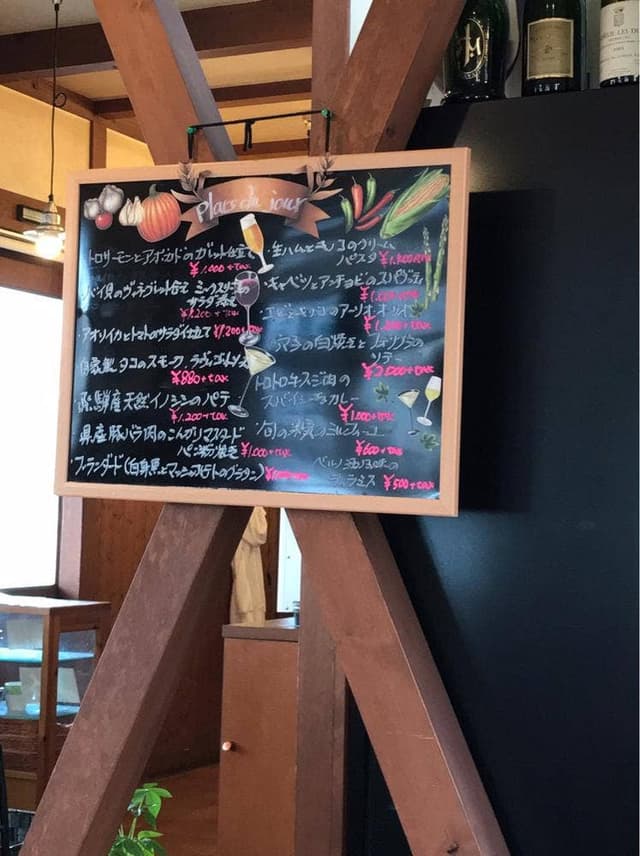 Plats du jour
・トロサーモンとアボカドのガレット仕立て
¥1,000+tax
バイ貝のヴィネグレット合え ミックスリーフの
サラダ添え
¥1,200+tax
・アオリイカとトマトのサラダ仕立て ¥1,200+tax
自家製タコのスモーク、ラヴィゴットソース
¥880+tax
・飛騨産天然イノシシのパテ
¥1,200+tax
県産豚バラ肉のこんがりマスタード
パン粉焼き ¥1,000+tax
・ブランダード(白身魚とマッシュポテトのグラタン)
・生ハムとキノコのクリーム
パスタ
・キャベツとアンチョビのスパゲッティ
・エビとキノコのアーリオ・オーリオ
の白焼きとフォアグラの
ソテー
¥2,000+tax
トロトロ牛スジ肉の
スパイシーカレー
¥1,000+tax
・旬の果実のミルフィーユ
¥600+tax
ティラミス ¥500+tax